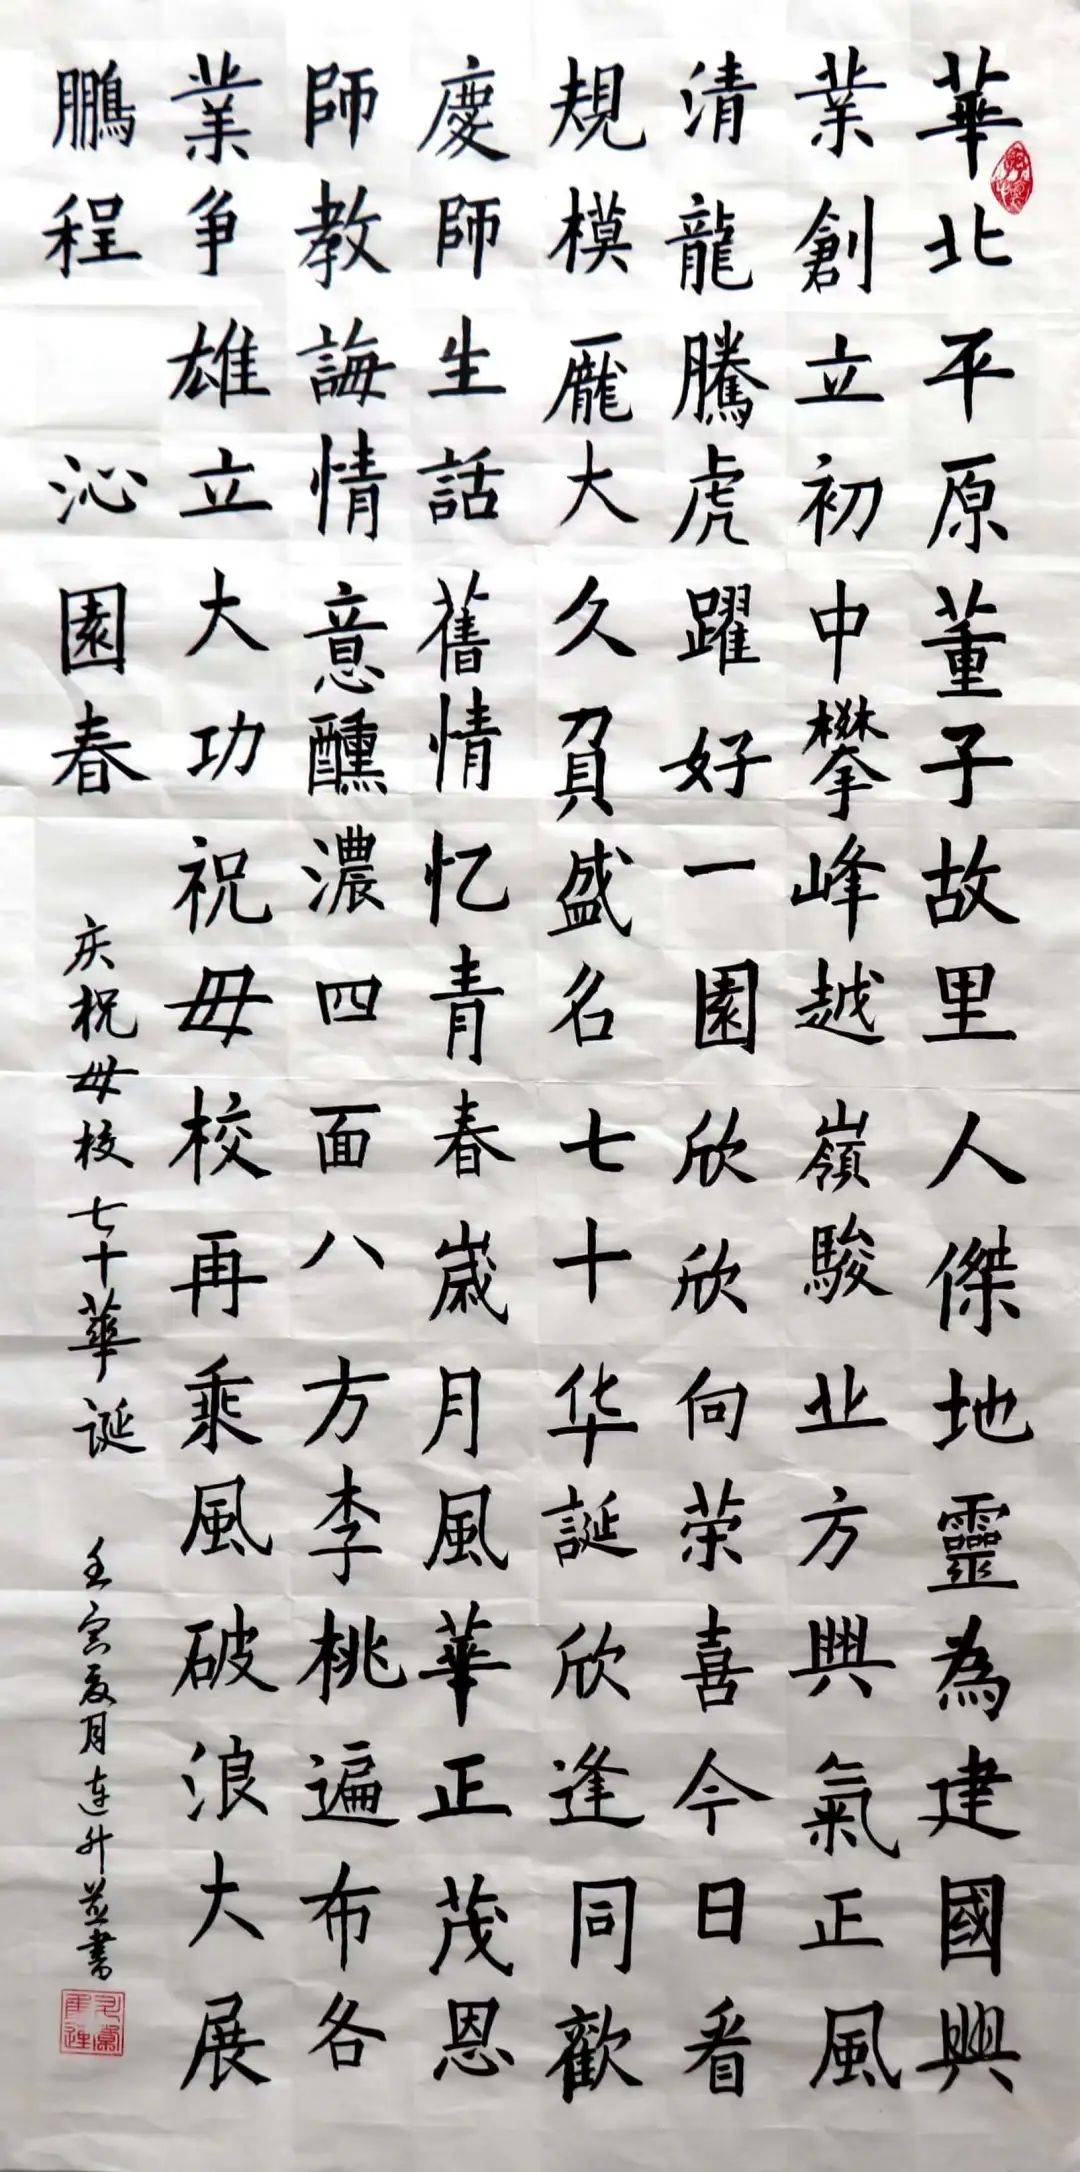 華北平原董子故里人傑地靈為建國興
業創立初中攀峰越嶺駿业方興氣正風
清龍騰虎躍好一園欣欣向荣喜今日看
規模龐大久負盛名七十华誕欣逢同歡
慶師生話舊情忆青春歲月風華正茂恩
師教誨情意醺濃四面八方李桃遍布各
業争雄立大功祝母校再乘風破浪大展
鵬程 沁園春 庆祝母校七十華诞 壬寅夏月連升並書